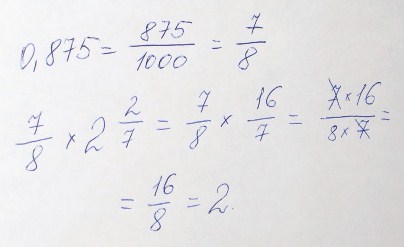 0,875 = 875/1000 = 7/8
7/8 × 2 2/7 = 7/8 × 16/7 = 7×16/8×7 =
= 16/8 = 2.